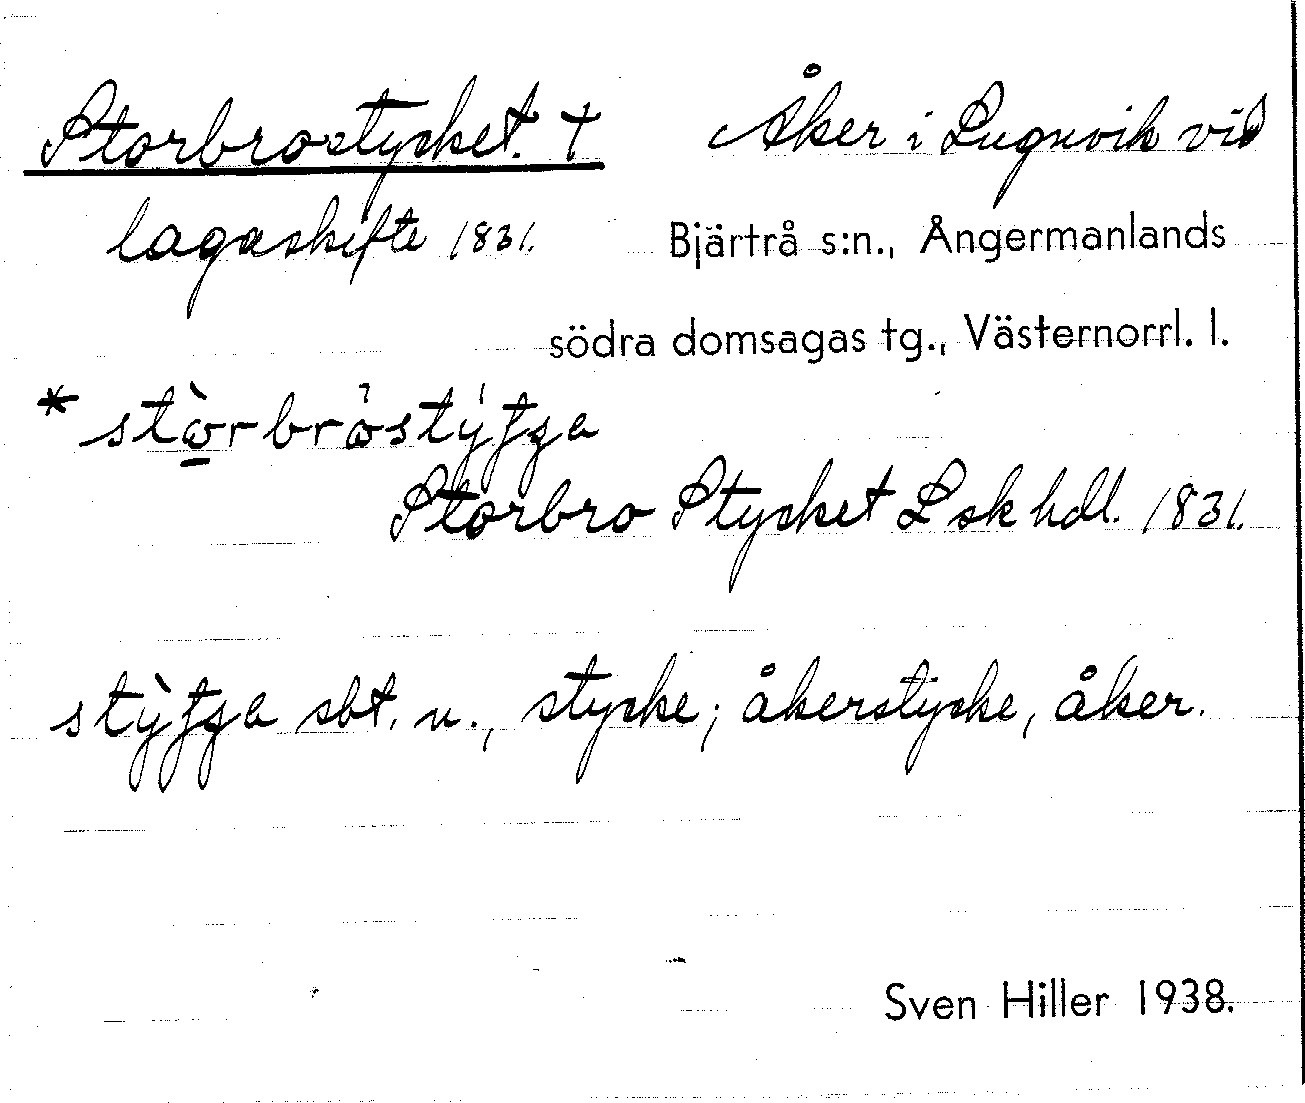 Storbrostycket. † Åker i Lugnvik vid
lagaskifte 1831. Bjärtrå s:n., Ångermanlands
södra domsagas tg., Västernorrl. l.
Storbro Stycket Lsk hdl. 1831.
sbt. n., stycke; åkerstycke, åker.
Sven Hiller 1938.